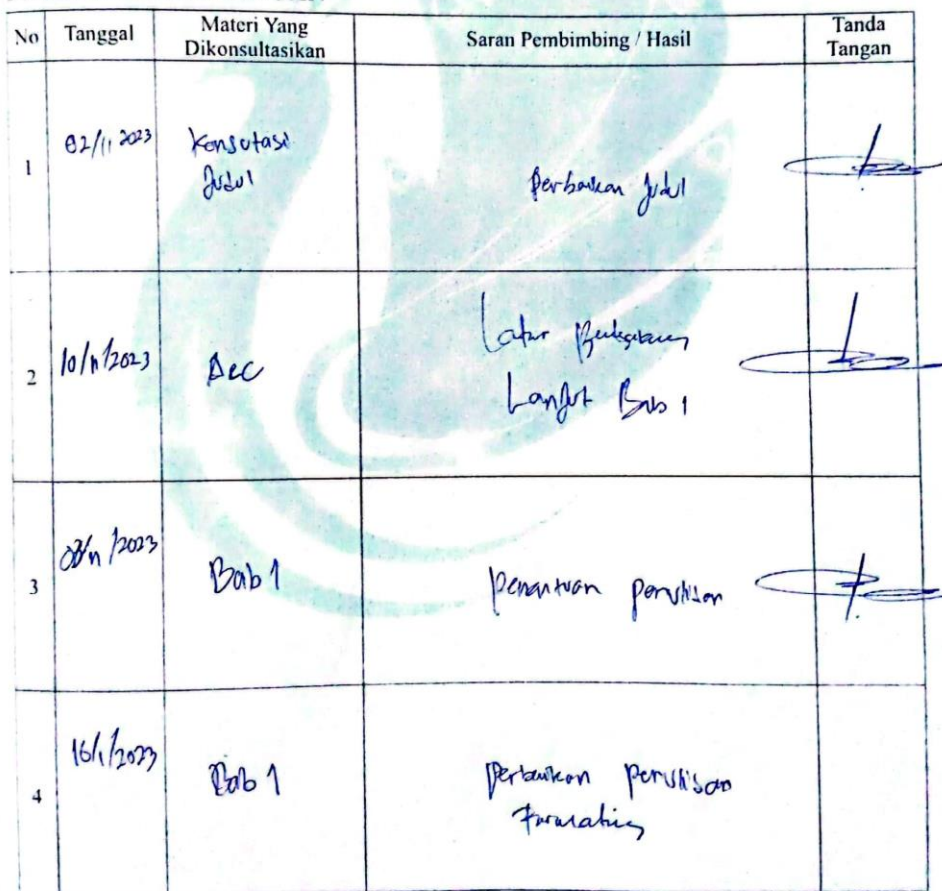 No Tanggal Materi Yang Dikonsultasikan Saran Pembimbing / Hasil Tanda Tangan
1 02/11 2023 Konsutasi Judul perbaikan Judul
2 10/11/2023 Acc Latar Belakang
Lanjut Bab 1
3 /2023 Bab 1 penulisan
4 /2023 Bab 1 perbaikan penulisan